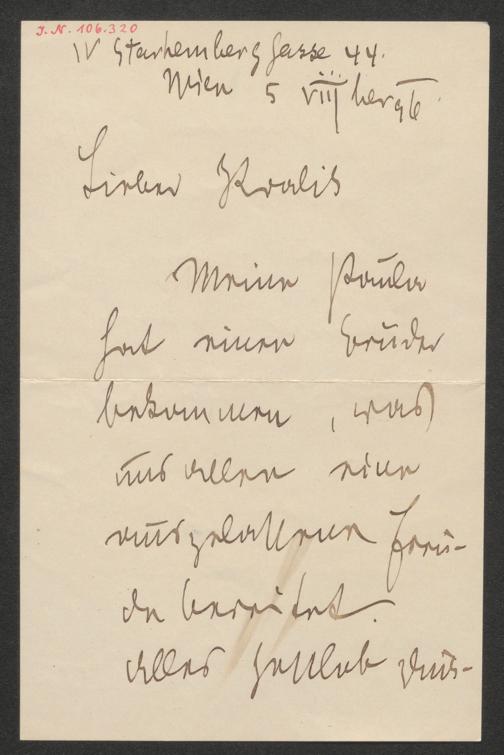 J. N. 106.320
IV Starhemberggasse 44.
Wien 5 VIII ber 96.
Lieber Kralik
Meine Paula
hat einen Bruder
bekommen, was
uns allen eine
ausgelassene Freu-
de bereitet.
Alles Gottlob